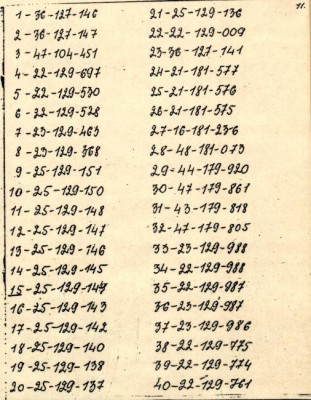 11.
1-36-127-146
2-36-127-147
3-47-104-451
4-22-129-697
5-22-129-530
6-22-129-528
7-23-129-463
8-23-129-368
9-25-129-151
10-25-129-150
11-25-129-148
12-25-129-147
13-25-129-146
14-25-129-145
15-25-129-144
16-25-129-143
17-25-129-142
18-25-129-140
19-25-129-138
20-25-129-137
21-25-129-136
22-22-129-009
23-36-127-141
24-21-181-577
25-21-181-576
26-21-181-575
27-16-181-236
28-48-181-073
29-44-179-920
30-47-179-861
31-43-179-818
32-47-179-805
33-23-129-988
34-22-129-988
35-22-129-987
36-23-129-987
37-23-129-986
38-22-129-775
39-22-129-774
40-22-129-761